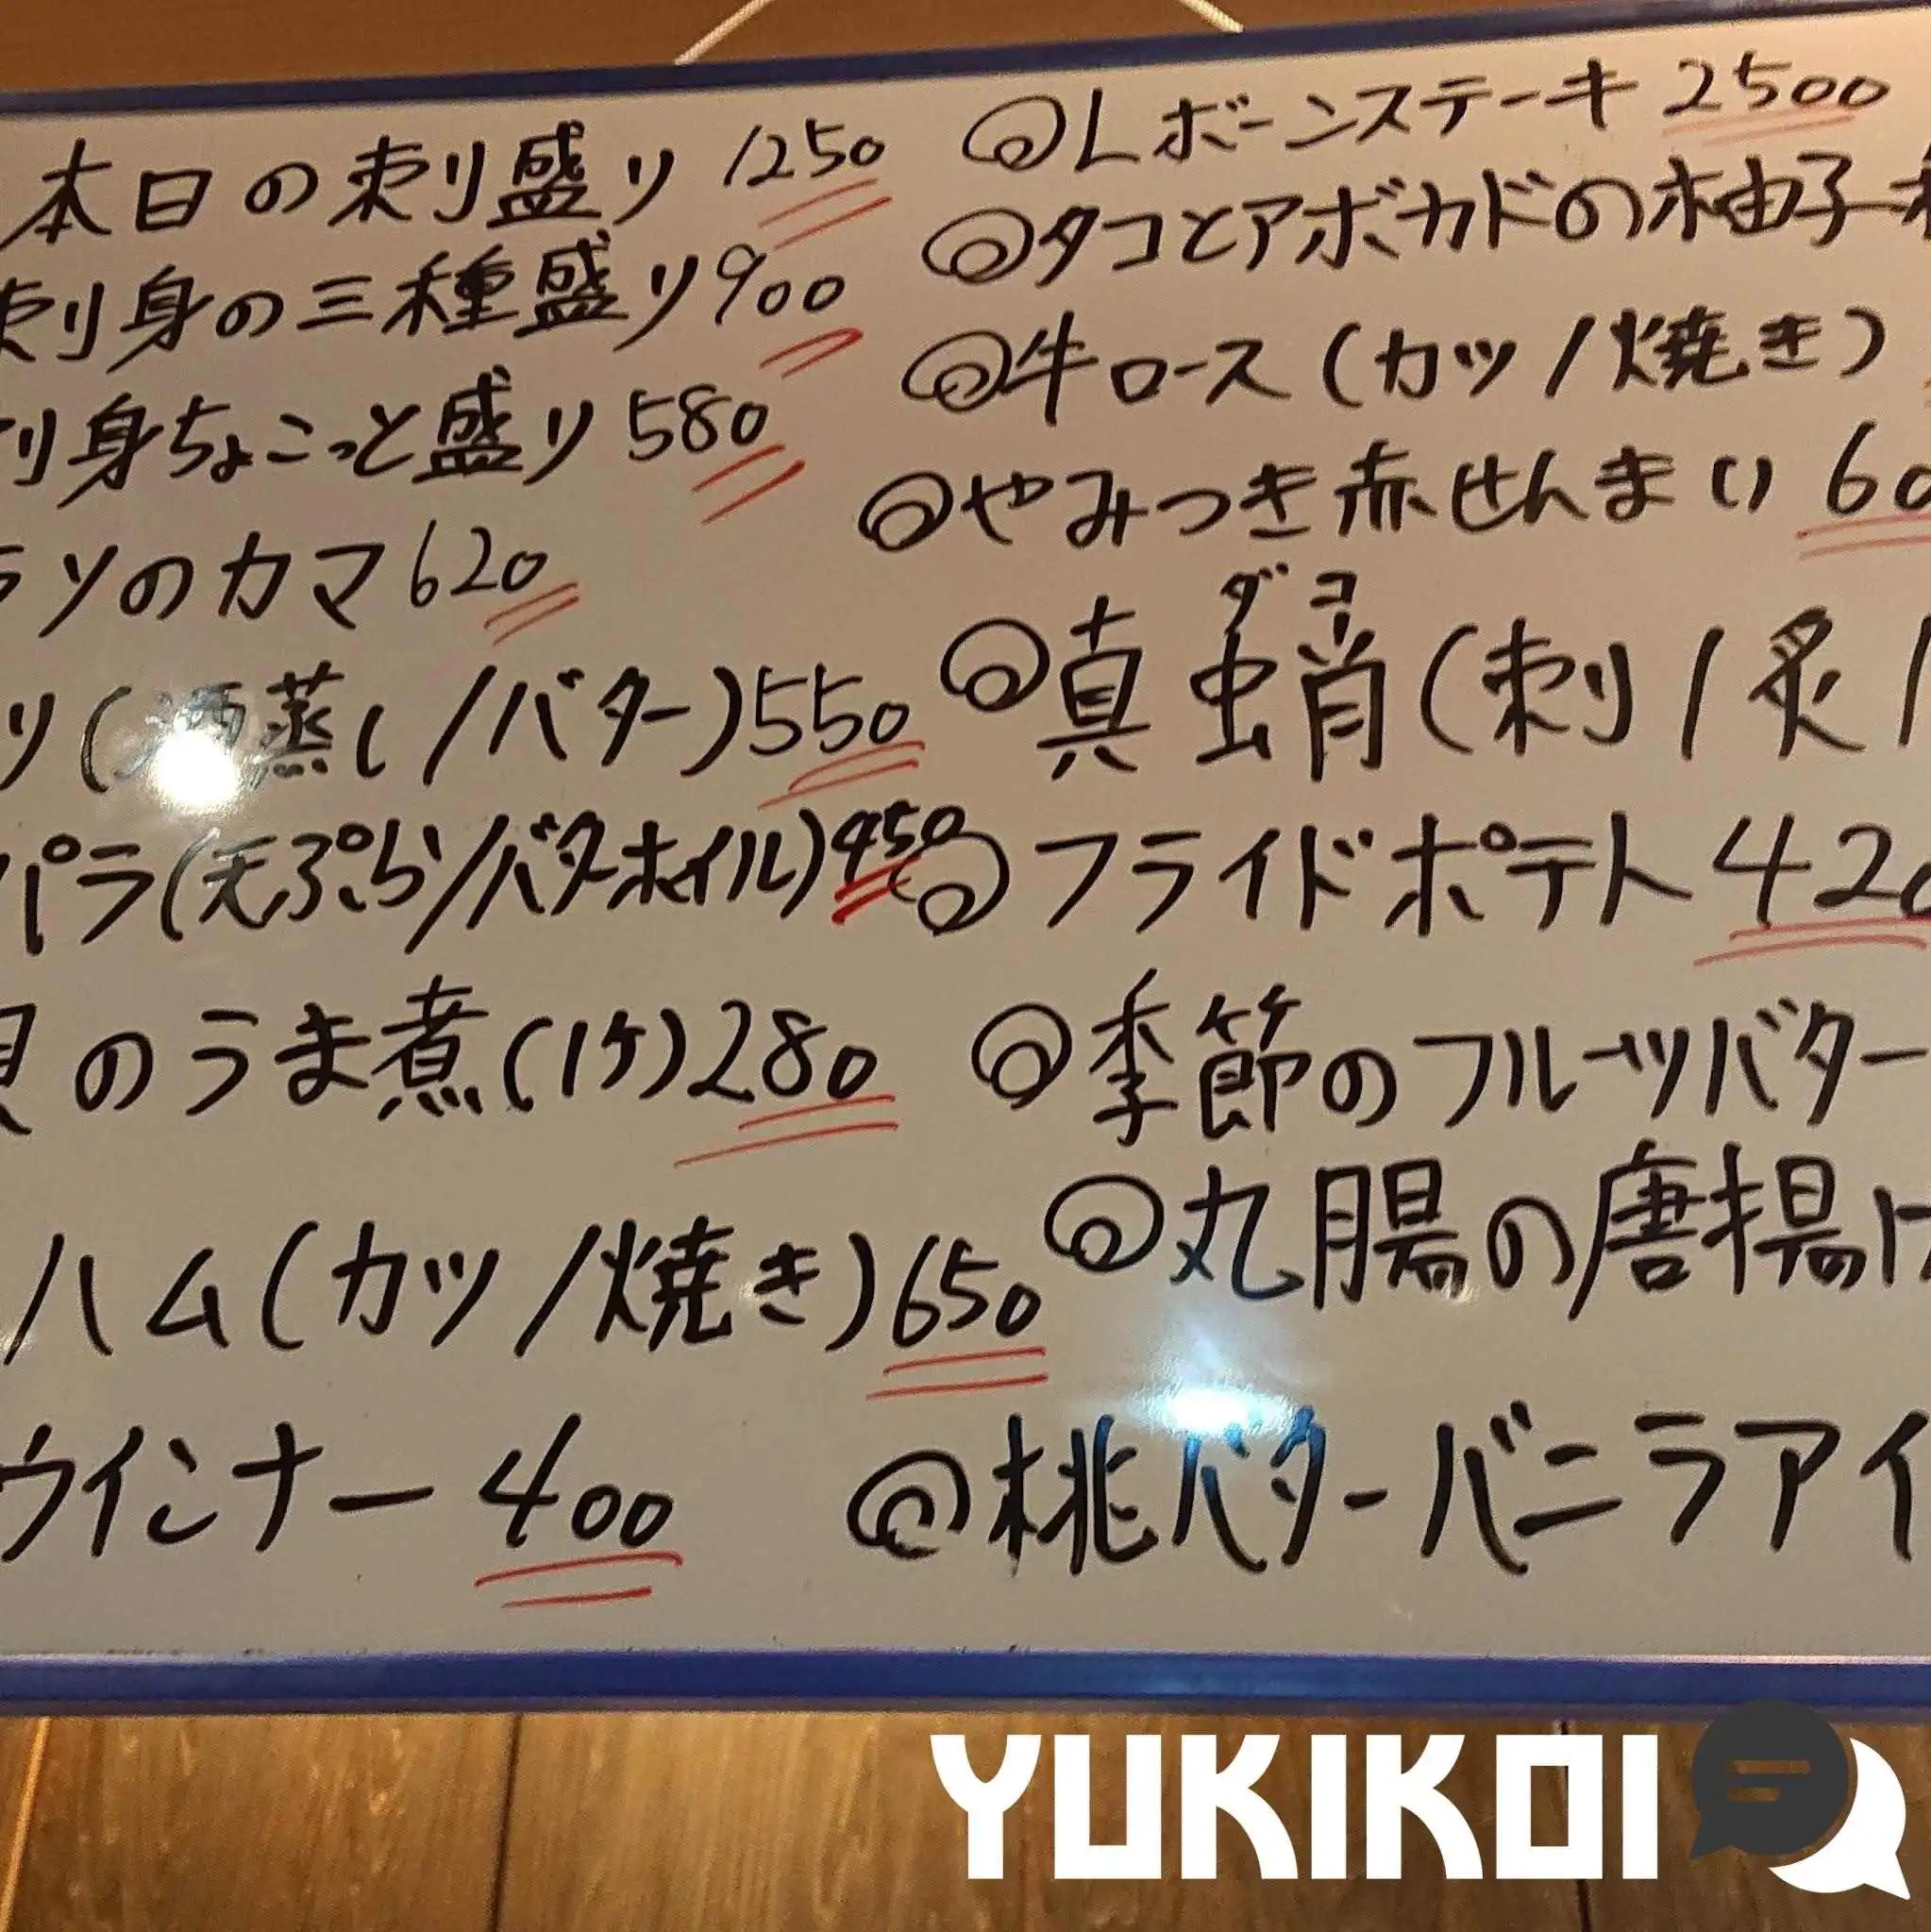 本日の刺り盛り 1250
刺身の三種盛り 900
身ちょこっと盛り 580
ソのカマ 620
リ(酒蒸し/バター) 550
パラ(天ぷら/バターホイル) 450
のうま煮(1ケ) 280
ハム(カツ/焼き) 650
ウインナー 400
◎Lボーンステーキ 2500
◎タコとアボカドの柚子
◎牛ロース(カツ/焼き)
◎やみつき赤せんまい 60
◎真蛸(刺/炙/
ダコ
◎フライドポテト 420
◎季節のフルーツバター
◎丸腸の唐揚げ
◎桃バターバニラアイ
YUKIKOI